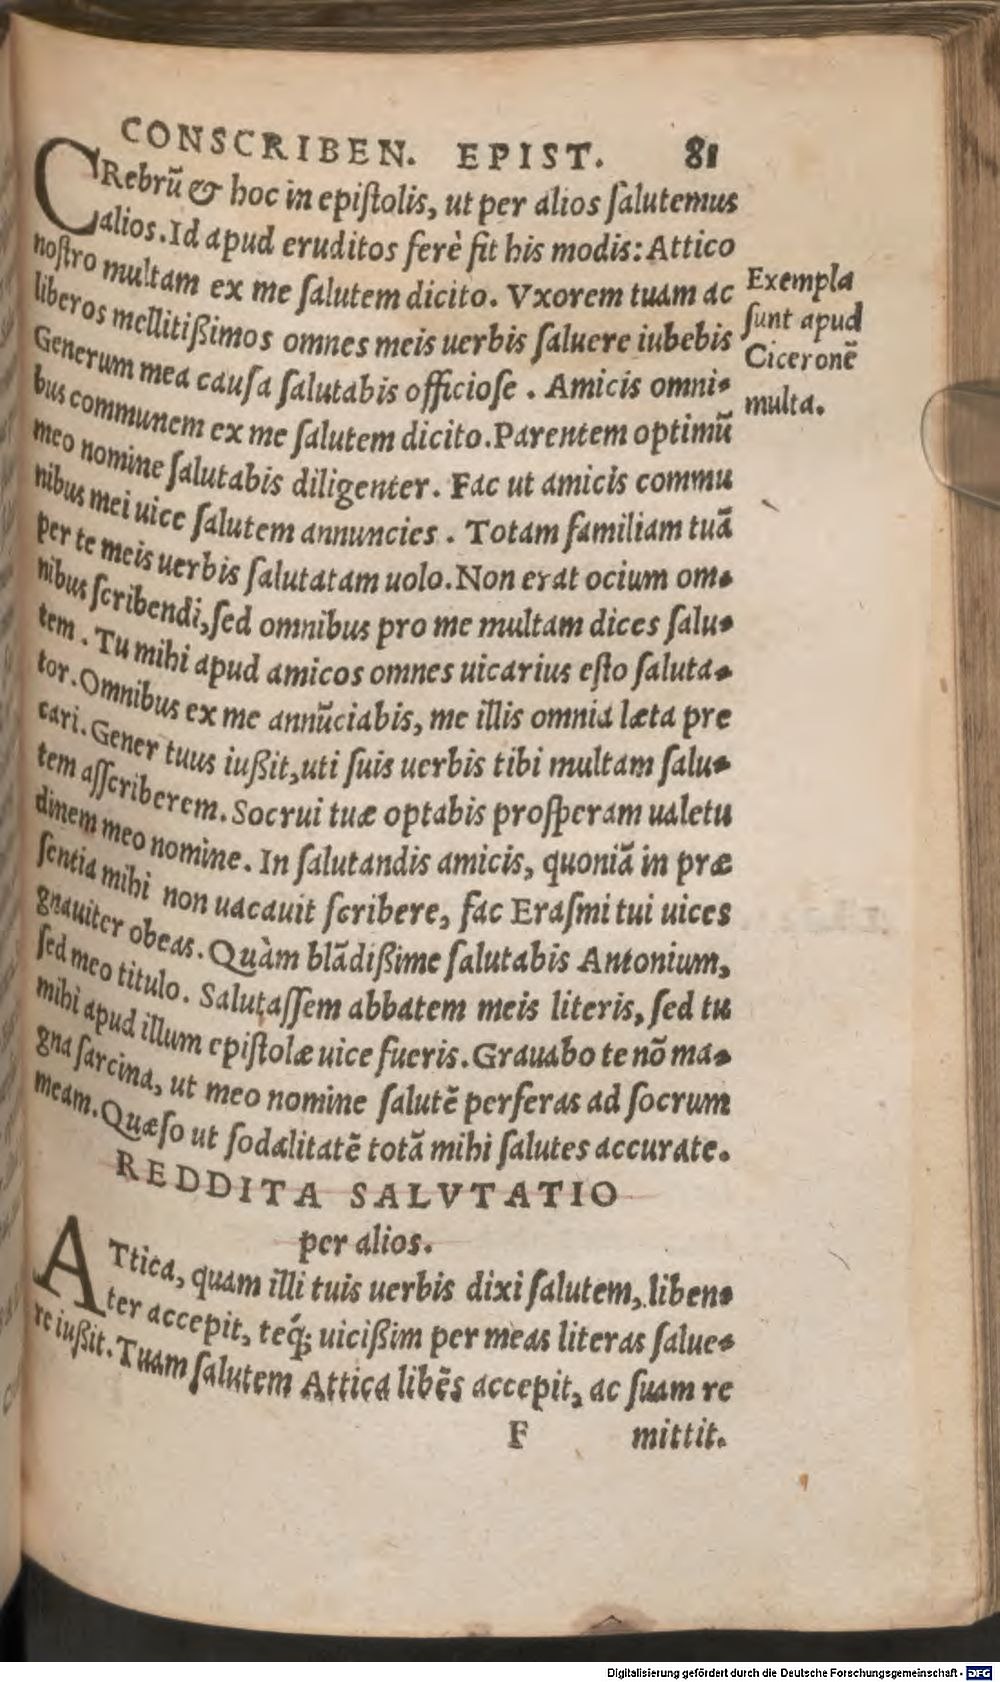 CONSCRIBEN. EPIST. 81
CRebrũ & hoc in epiſtolis, ut per alios ſalutemus
alios. Id apud eruditos ferè fit his modis: Attico
noſtro multam ex me ſalutem dicito. Vxorem tuam ac
liberos mellitißimos omnes meis uerbis ſaluere iubebis
Generum mea cauſa ſalutabis officioſe . Amicis omni-
bus communem ex me ſalutem dicito. Parentem optimũ
meo nomine ſalutabis diligenter. Fac ut amicis commu
nibus mei uice ſalutem annuncies . Totam familiam tuã
per te meis uerbis ſalutatam uolo. Non erat ocium om-
nibus ſcribendi, ſed omnibus pro me multam dices ſalu-
tem . Tu mihi apud amicos omnes uicarius eſto ſaluta-
tor. Omnibus ex me annũciabis, me illis omnia læta pre
cari. Gener tuus iußit, uti ſuis uerbis tibi multam ſalu-
tem aſſcriberem. Socrui tuæ optabis proſperam ualetu
dinem meo nomine. In ſalutandis amicis, quoniã in præ
ſentia mihi non uacauit ſcribere, fac Eraſmi tui uices
gnauiter obeas. Quàm blãdißime ſalutabis Antonium,
ſed meo titulo. Salutaſſem abbatem meis literis, ſed tu
mihi apud illum epiſtolæ uice fueris. Grauabo te nõ ma-
gna ſarcina, ut meo nomine ſalutẽ perferas ad ſocrum
meam. Quæſo ut ſodalitatẽ totã mihi ſalutes accurate.
Exempla
ſunt apud
Ciceronẽ
multa.
REDDITA SALVTATIO
per alios.
ATtica, quam illi tuis uerbis dixi ſalutem, liben-
ter accepit, teq́; uicißim per meas literas ſalue-
re iußit. Tuam ſalutem Attica libẽs accepit, ac ſuam re
F mittit.
Digitalisierung gefördert durch die Deutsche Forschungsgemeinschaft - DFG